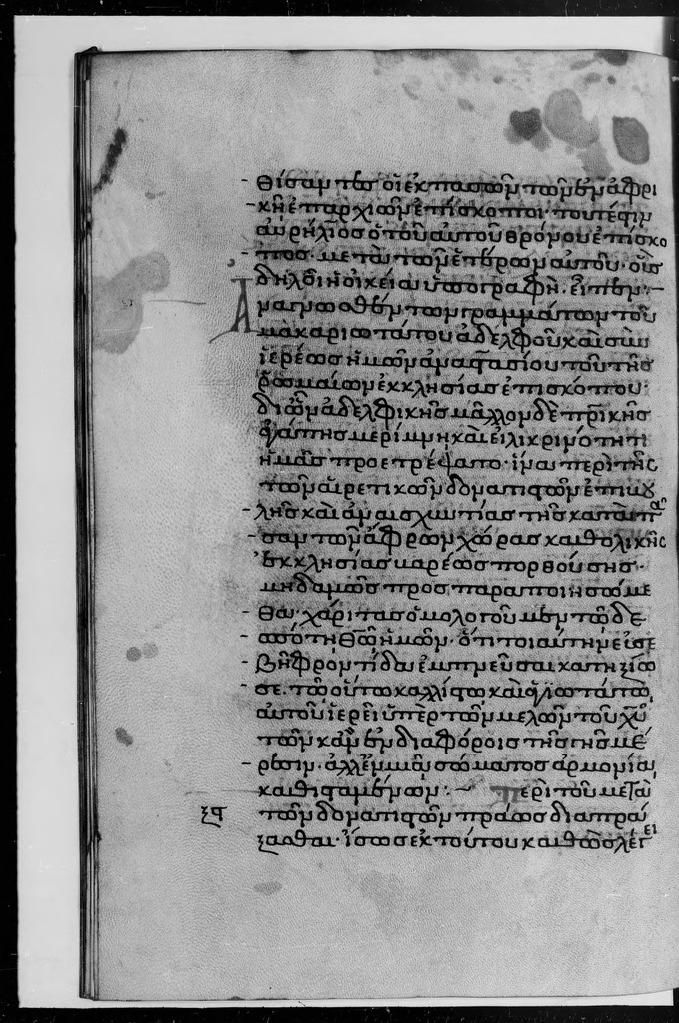 θίσαντες οἱ ἐκ πασῶν τῶν ἐν ἀφρι
κῆ ἐπαρχιῶν ἐπίσκοποι· τουτέστιν
αὐρήλιος ὁ τοῦ αὐτοῦ θρόνου ἐπίσκο
πος. μετὰ τῶν ἑτέρων αὐτοῦ. οὓς
δηλοῖ ἡ οἰκεία ὑπογραφή. εἶπεν:
Ἀναγνωσθέντων γραμμάτων τοῦ
μακαριωτάτου ἀδελφοῦ καὶ συν
ϊερέως ἡμῶν ἀναστασίου τοῦ τῆς
ῥωμαίων ἐκκλησίας ἐπισκόπου·
δι ὧν ἀδελφικῆς μᾶλλον δὲ πρικῆς
ἀγάπης μερίμνη καὶ εἰλικρινότητι
ἡμᾶς προετρέψατο. ἵνα περὶ τῆς
τῶν αἱρετικῶν δονατιστῶν ἐπιβου
λῆς καὶ ἀναισχυντίας τῆς κατὰ πᾶ
σαν τῶν ἄφρων χώρας καθολικῆς
ἐκκλησίας παρέως πορθούσης·
μηδαμῶς προσπαραποιησώμε
θα· χάριτας ὁμολογοῦμεν τῶ δε
σπότη θῶ ἡμῶν. ὅτι τοιαύτην εὐσε
βῆ φροντίδα ἐμπνεῦσαι κατηξίω
σε. τῶ οὕτω καλλίστω καὶ ἁγιωτάτω,
αὐτοῦ ἱερεῖ ὑπὲρ τῶν μελῶν τοῦ χυ
τῶν κἂν ἐν διαφόροις τῆς γῆς μέ
ρεσιν. ἀλλ ἐν μιᾶ σώματος ἁρμονία,
καθισταμένων: – Περὶ τοῦ μετὰ
ξϛ τῶν δονατιστῶν πράως διαπρά
ξασθαι. ἴσως ἐκ τούτου καθὼς λέγει